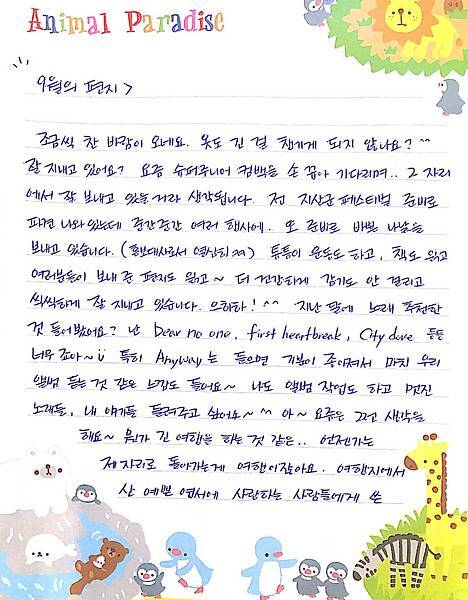 Animal Paradise
9월의 편지>
조금씩 찬 바람이 오네요. 옷도 긴 걸 챙기게 되지 않나요? ^^
잘 지내고 있어요? 요즘 슈퍼주니어 컴백을 손 꼽아 기다리며.. 그 자리
에서 잘 보내고 있을거라 생각됩니다. 전 지상군 페스티벌 준비로
파견 나와있는데 중간중간 여러 행사에. 또 준비로 바쁠 나날을
보내고 있습니다. (홍보대사로서 열심히) 틈틈이 운동도 하고, 책도 읽고
여러분들이 보내 준 편지도 읽고~ 더 건강하게 감기도 안 걸리고
씩씩하게 잘 지내고 있습니다. 으하하! ^^ 지난 달에 노래 추천한
것 들어봤어요? 난 Dear no one, first heartbreak, City dove 등등
너무 좋아~ 특히 Anyway는 들으면 기분이 좋아져서 마치 우리
앨범 듣는 것 같은 느낌도 들어요~ 나도 앨범 작업도 하고 멋진
노래들, 내 얘기를 들려주고 싶어요~ ^^ 아~ 요즘은 그런 생각을
해요~ 뭔가 긴 여행을 하는 것 같은.. 언젠가는
제자리로 돌아가는게 여행이잖아요. 여행지에서
산 예쁜 엽서에 사랑하는 사람들에게 쓴